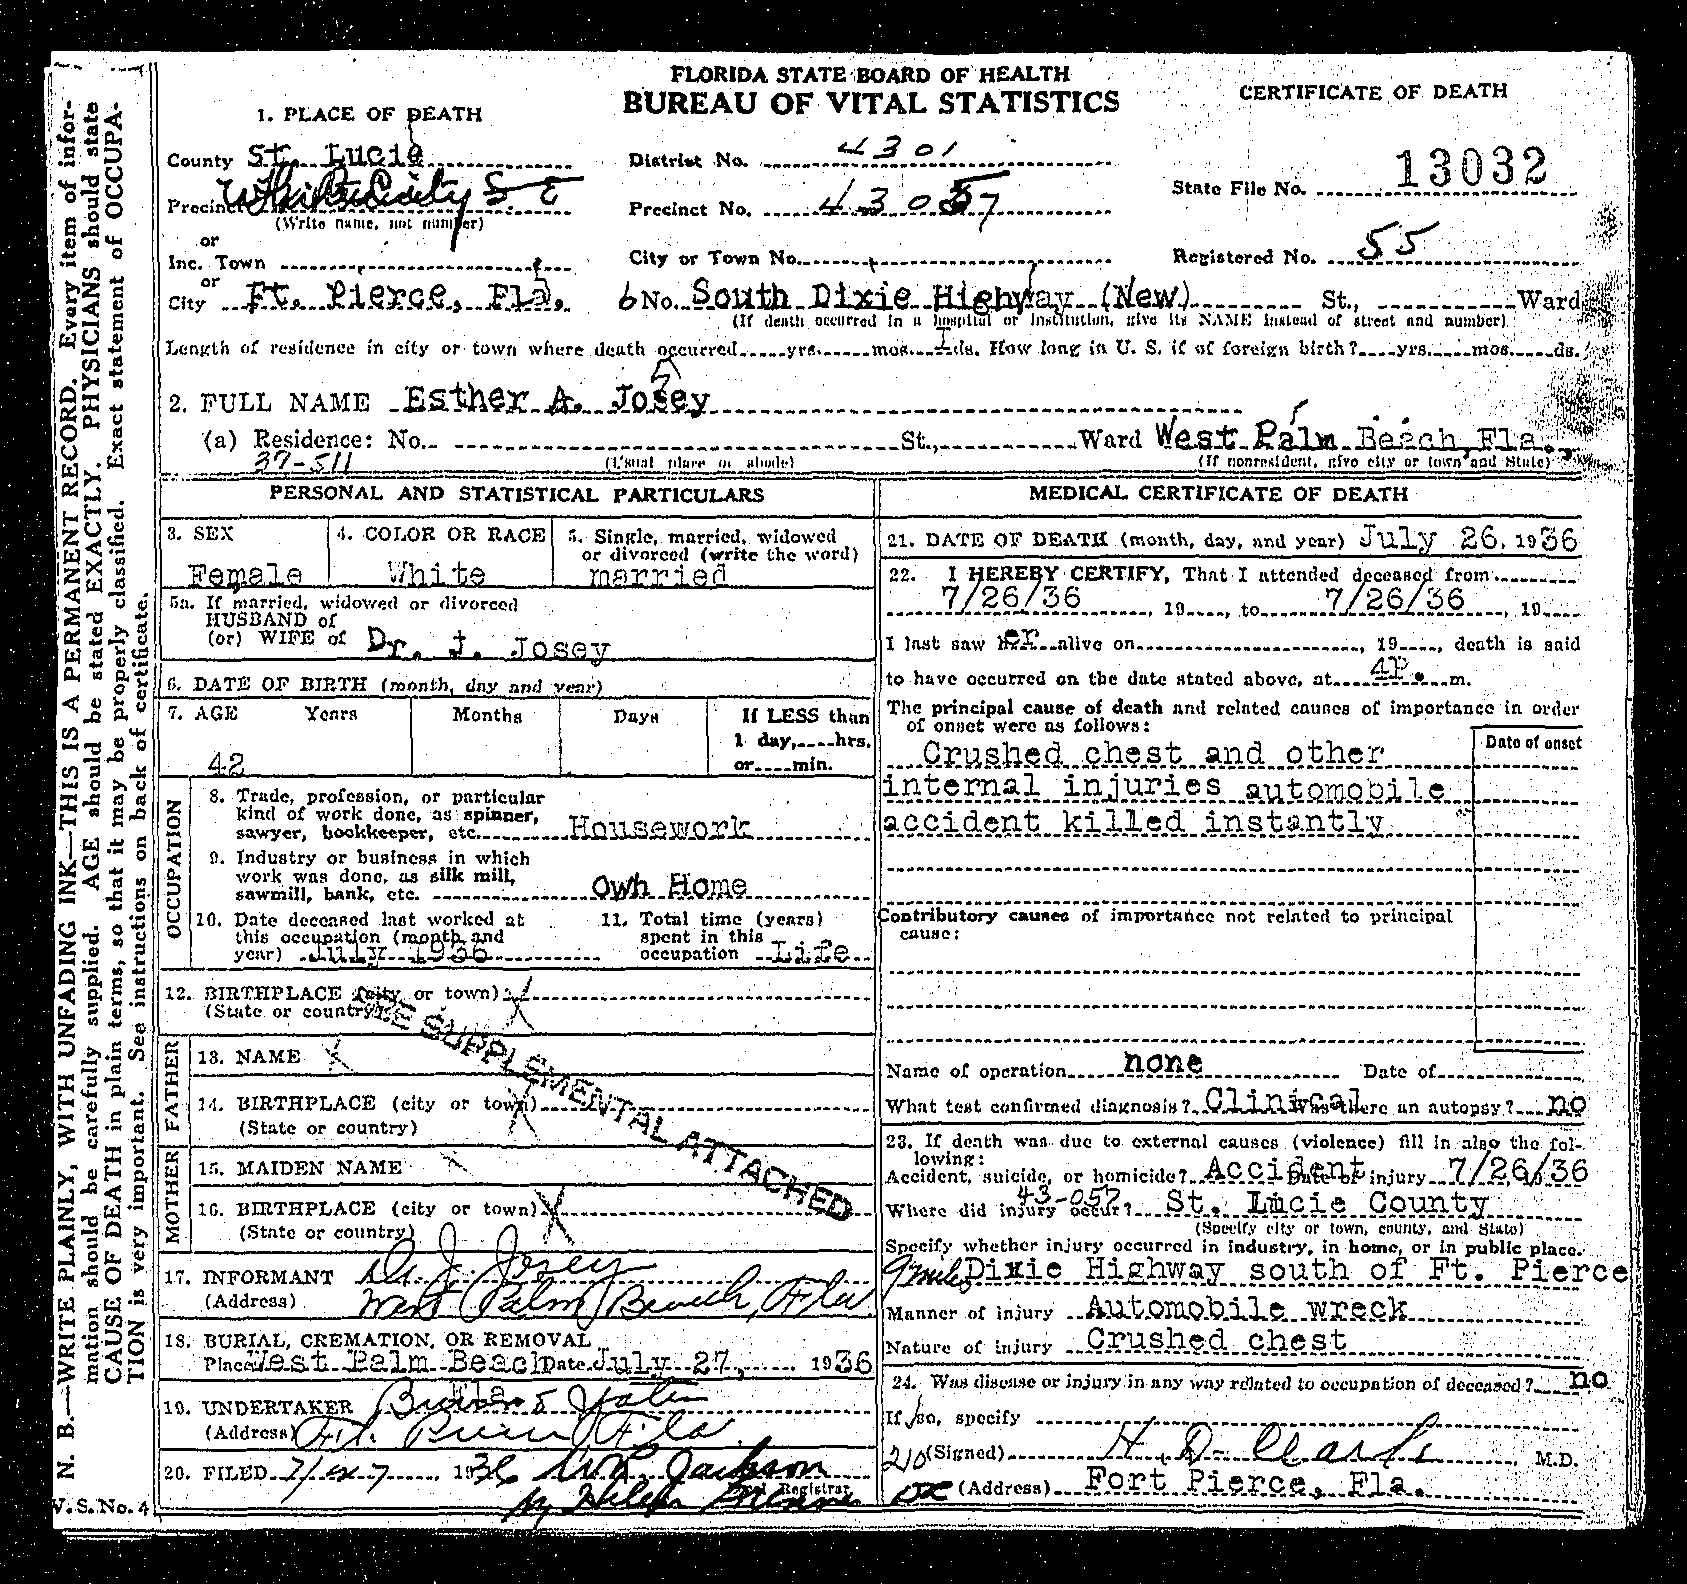 FLORIDA STATE BOARD OF HEALTH
BUREAU OF VITAL STATISTICS
CERTIFICATE OF DEATH
1. PLACE OF DEATH
County St. Lucie
District No. 4301
State File No. 13032
Precinct White City
(Write name, not number)
Precinct No. 43057
or
Inc. Town
City or Town No.
Registered No. 55
or
City Ft. Pierce, Fla.
6 No. South Dixie Highway (New) St., Ward
(If death occurred in a hospital or institution, give its NAME instead of street and number)
Length of residence in city or town where death occurred yrs. mos. 1 ds. How long in U. S. if of foreign birth? yrs. mos. ds.
2. FULL NAME Esther A. Josey
(a) Residence: No. St., Ward West Palm Beach, Fla.,
37-511
(Usual place of abode)
(If nonresident, give city or town and State)
PERSONAL AND STATISTICAL PARTICULARS
3. SEX
Female
4. COLOR OR RACE
White
5. Single, married, widowed
or divorced (write the word)
married
5a. If married, widowed or divorced
HUSBAND of
(or) WIFE of Dr. J. Josey
6. DATE OF BIRTH (month, day and year)
7. AGE Years Months Days If LESS than
1 day, hrs.
42 or min.
OCCUPATION
8. Trade, profession, or particular
kind of work done, as spinner,
sawyer, bookkeeper, etc. Housework
9. Industry or business in which
work was done, as silk mill,
sawmill, bank, etc. Own Home
10. Date deceased last worked at
this occupation (month and
year) July 1936
11. Total time (years)
spent in this
occupation Life
12. BIRTHPLACE (city or town)
(State or country)
SEE SUPPLEMENTAL ATTACHED
FATHER
13. NAME
14. BIRTHPLACE (city or town)
(State or country)
MOTHER
15. MAIDEN NAME
16. BIRTHPLACE (city or town)
(State or country)
17. INFORMANT Dr. J. Josey
(Address) West Palm Beach, Fla
18. BURIAL, CREMATION, OR REMOVAL
Place West Palm Beach Date July 27, 1936
Fla
19. UNDERTAKER
(Address) Ft. Pierce Fla
20. FILED 7/27 1936 Jackson
Registrar
V. S. No. 4
MEDICAL CERTIFICATE OF DEATH
21. DATE OF DEATH (month, day, and year) July 26, 1936
22. I HEREBY CERTIFY, That I attended deceased from
7/26/36, 19, to 7/26/36, 19
I last saw her alive on, 19, death is said
to have occurred on the date stated above, at 4P. m.
The principal cause of death and related causes of importance in order
of onset were as follows:
Date of onset
Crushed chest and other
internal injuries automobile
accident killed instantly
Contributory causes of importance not related to principal
cause:
Name of operation none Date of
What test confirmed diagnosis? Clinical Was there an autopsy? no
23. If death was due to external causes (violence) fill in also the fol-
lowing:
Accident, suicide, or homicide? Accident Date of injury 7/26/36
43-057
Where did injury occur? St. Lucie County
(Specify city or town, county, and State)
Specify whether injury occurred in industry, in home, or in public place.
9 miles Dixie Highway south of Ft. Pierce
Manner of injury Automobile wreck
Nature of injury Crushed chest
24. Was disease or injury in any way related to occupation of deceased? no
If so, specify
210 (Signed) H. D. Clark M.D.
(Address) Fort Pierce, Fla.
N. B.—WRITE PLAINLY, WITH UNFADING INK—THIS IS A PERMANENT RECORD. Every item of infor-
mation should be carefully supplied. AGE should be stated EXACTLY. PHYSICIANS should state
CAUSE OF DEATH in plain terms, so that it may be properly classified. Exact statement of OCCUPA-
TION is very important. See instructions on back of certificate.